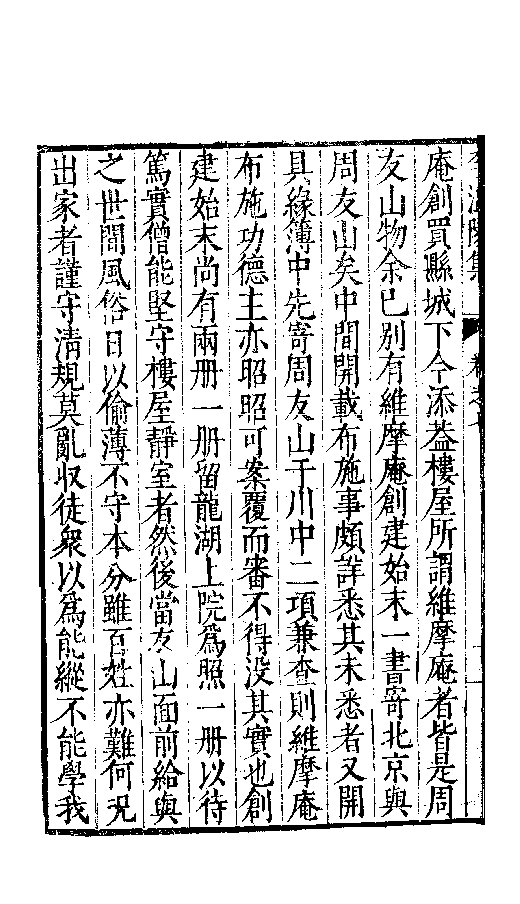 庵創買縣城下今添葢樓屋所謂維摩庵者皆是周
友山物余已别有維摩庵創建始末一書寄北京與
周友山矣中間開載布施事頗詳悉其未悉者又開
具緣簿中先寄周友山于川中二項兼查則維摩庵
布施功德主亦昭昭可案覆而審不得没其實也創
建始末尚有兩册一册留龍湖上院爲照一册以待
篤實僧能堅守樓屋靜室者然後當友山面前給與
之世間風俗日以偷薄不守本分雖百姓亦難何况
出家者謹守清規莫亂収徒衆以爲能縱不能學我